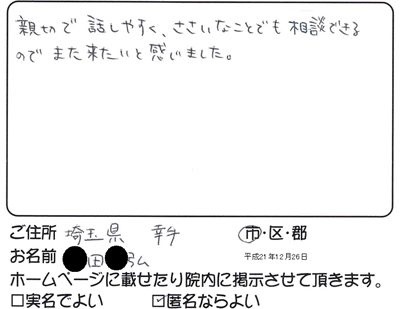 親切で話しやすく、ささいなことでも相談できる
のでまた来たいと感じました。
ご住所 埼玉県 幸手 市・区・郡
お名前 田
平成21年12月26日
ホームページに載せたり院内に掲示させて頂きます。
□実名でよい ☑匿名ならよい